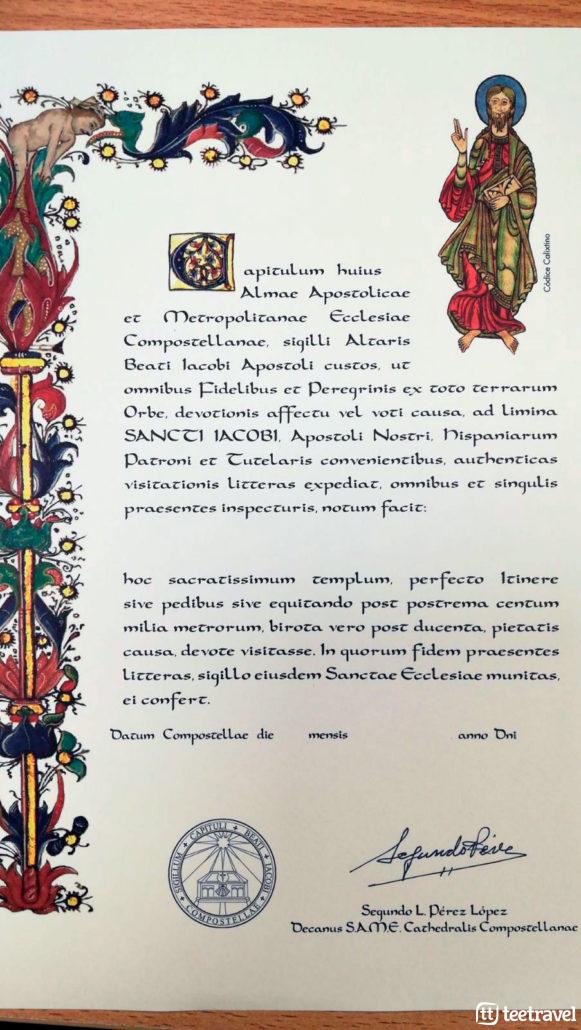 Códice Calixtino
Capitulum huius
Almae Apostolicae
et Metropolitanae Ecclesiae
Compostellanae, sigilli Altaris
Beati Iacobi Apostoli custos, ut
omnibus Fidelibus et Peregrinis ex toto terrarum
Orbe, devotionis affectu vel voti causa, ad limina
SANCTI IACOBI, Apostoli Nostri, Hispaniarum
Patroni et Tutelaris convenientibus, authenticas
visitationis litteras expediat, omnibus et singulis
praesentes inspecturis, notum facit:
hoc sacratissimum templum, perfecto Itinere
sive pedibus sive equitando post postrema centum
milia metrorum, birota vero post ducenta, pietatis
causa, devote visitasse. In quorum fidem praesentes
litteras, sigillo eiusdem Sanctae Ecclesiae munitas,
ei confert.
Datum Compostellae die mensis anno Dni
SIGILLUM CAPITULI BEATI IACOBI COMPOSTELLAE
Segundo Pérez
Segundo L. Pérez López
Decanus S.A.M.E. Cathedralis Compostellanae
tt teetravel